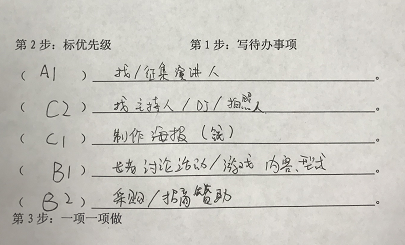 第2步：标优先级 第1步：写待办事项
（ A1 ） 找/征集演讲人 。
（ C2 ） 找主持人/DJ/拍照人 。
（ C1 ） 制作海报（钱） 。
（ B1 ） 讨论活动/游戏 内容、型式 。
（ B2 ） 采购/招商赞助 。
第3步：一项一项做